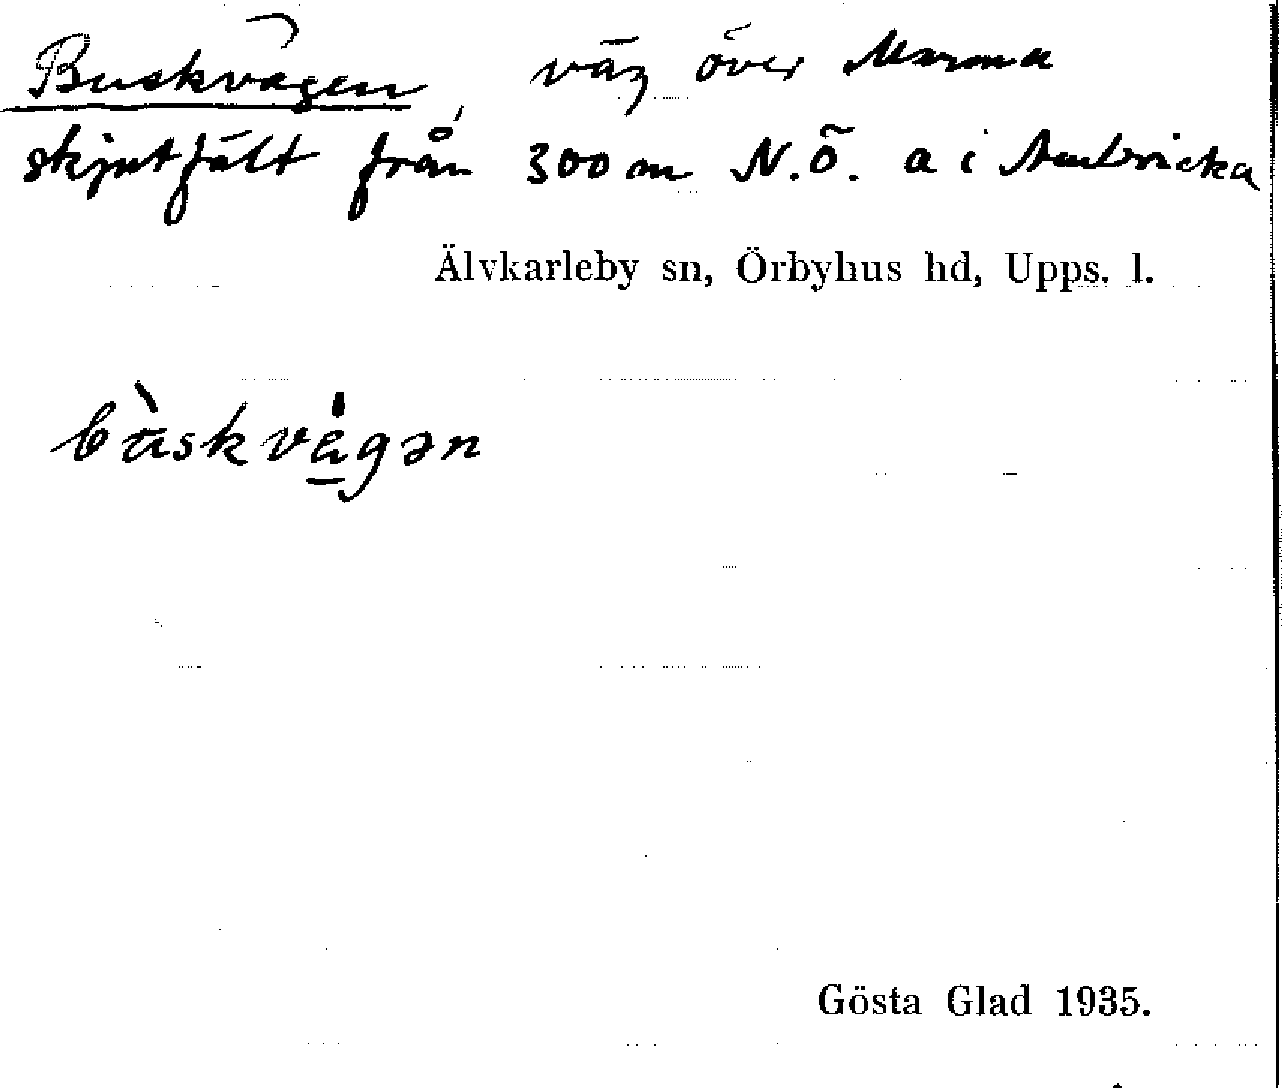 Buskvägen, väg över Marma
skjutfält från 300 m N.Ö. a i Ambricka
Älvkarleby sn, Örbyhus hd, Upps. l.
bùskvägən
Gösta Glad 1935.